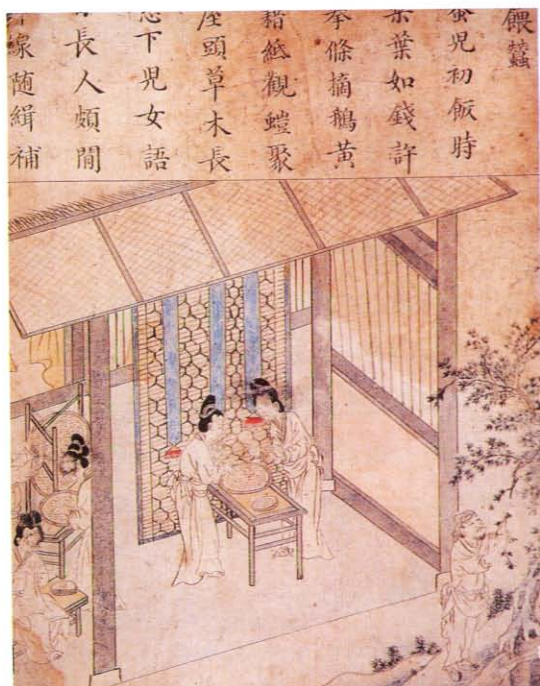 餵蠶
蚕兒初飯時
葉如錢許
條摘鵝黃
藉紙觀螘聚
屋頭草木長
下兒女語
長人頗閒
線隨緝補